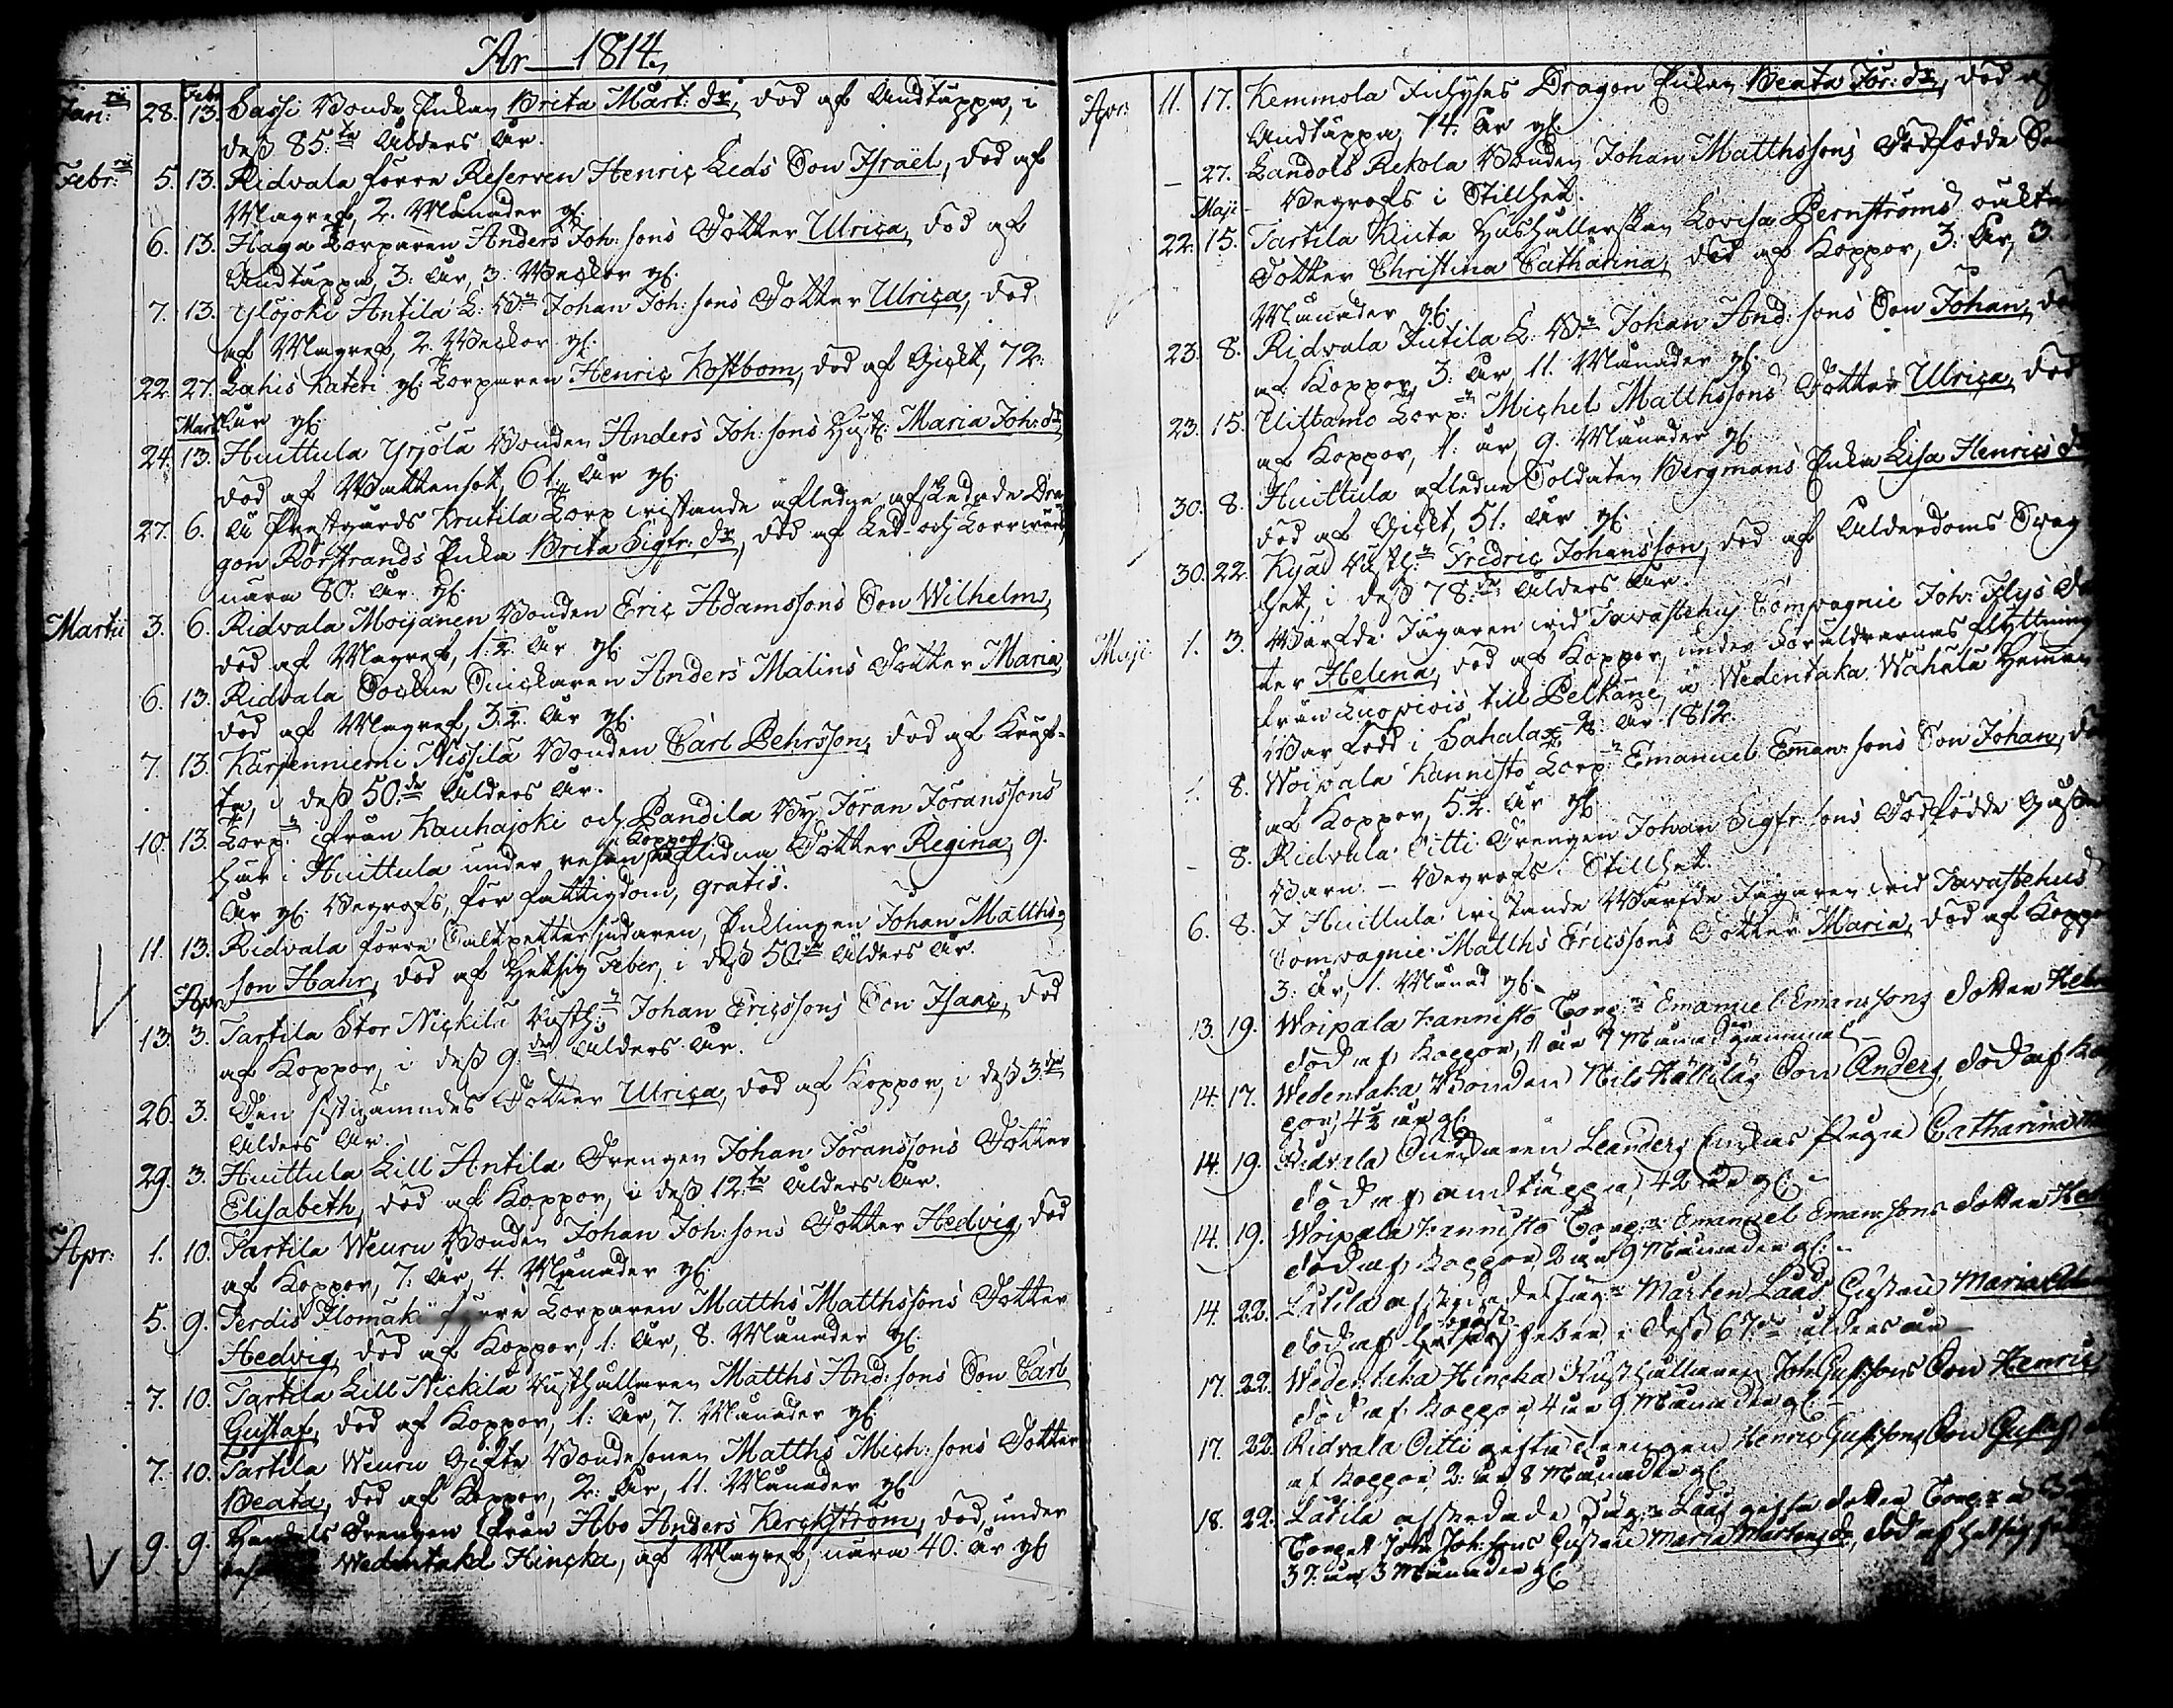 År 1814,
Febr.
Jan: 28. 13. Sassi Bonde Enkan Brita Märt: dr, död af Andtäppa, i
dess 85:te Ålders År.
Febr: 5. 13. Ridvala förre Reserven Henric Leds Son Israël, död af
Magref, 2. Månader gl.
6. 13. Haga Torparen Anders Joh: sons Dotter Ulrica, död af
Andtäppa, 3. År, 3. Weckor gl.
7. 13. Ylöjoki Antila L: Bn Johan Joh: sons Dotter Ulrica, död
af Magref, 2. Weckor gl.
22. 27. Lahis Kateri gl. Torparen Henric Kostbom, död af Gickt, 72.
År gl.
Mart.
24. 13. Huittula Yrjölä Bonden Anders Joh: sons Hust: Maria Joh: dr,
död af Wattensot, 61. År gl.
27. 6. Å Prestgårds Krutila Torp vistande afledne afskedade Dra-
gon Rörstrands Enka Brita Sigfr: dr, död af Led- och Torrvärk,
nära 80. År gl.
Martii 3. 6. Ridvala Moijanen Bonden Eric Adamssons Son Wilhelm,
död af Magref, 1.½. År gl.
6. 13. Ridvala Sockne Snickaren Anders Malins Dotter Maria,
död af Magref, 3.½. År gl.
7. 13. Kärjenniemi Nissilä Bonden Carl Pehrsson, död af Kräf-
ta, i dess 50:de Ålders År.
10. 13. Torp:n från Kauhajoki och Pandila By Jöran Jöranssons
här i Huittula under resan i Koppor aflidna Dotter Regina, 9.
År gl. Begrofs, för fattigdom, gratis.
11. 13. Ridvala förre Saltpettersjudaren, Enklingen Johan Matths-
son Hahr, död af Hetsig Feber, i dess 50:de Ålders År.
Apr.
13. 3. Tartila Stor Nickilä Rusth:n Johan Ericssons Son Isaac, död
af Koppor, i dess 9:de Ålders År.
26. 3. Den sistnämndes Dotter Ulrica, död af Koppor, i dess 3:dje
Ålders År.
29. 3. Huittula Lill Antila Drengen Johan Jöranssons Dotter
Elisabeth, död af Koppor, i dess 12:te Ålders År.
Apr: 1. 10. Tartila Weuru Bonden Johan Joh: sons Dotter Hedvig, död
af Koppor, 7. År, 4. Månader gl.
5. 9. Ilomäki förre Torparen Matths Matthssons Dotter
Hedvig, död af Koppor, 1. År, 8. Månader gl.
7. 10. Tartila Lill Nickilä Rusthållaren Matths And: sons Son Carl
Gustaf, död af Koppor, 1: År, 7. Månader gl.
7. 10. Tartila Weuru Gifte Bondesonen Matths Mich: sons Dotter
Beata, död af Koppor, 2: År, 11. Månader gl.
9. 9. Handels Drengen från Åbo Anders Kerckström, död, under
Wedentaka Hincka, af Magref, nära 40. År gl
Apr: 11. 17. Kemmola Dragon Enkan Beata Jör: dr, död af
Andtäppa, 74. År gl.
– 27. Rekola Bonden Johan Matthssons Dödfödde Son
Begrofs i Stillhet.
Maji
22. 15. Tartila Kuta Hushållerskan Lovisa Bernströms oäkta
Dotter Christina Catharina, död af Koppor, 3. År, 3.
Månader gl.
23. 8. Ridvala Jutila L: Bn Johan And: sons Son Johan, död
af Koppor, 3. År, 11. Månader gl.
23. 15. Uittamo Torp:n Michel Matthssons Dotter Ulrica, död
af Koppor, 1: år, 9. Månader gl.
30. 8. Huittula afledne Soldaten Bergmans Enka Lisa Henrics dr
död af Gickt, 51. År gl.
30. 22. Rusth:n Fredric Johansson, död af Ålderdoms Svag-
het, i dess 78:de Ålders År.
Maji 1. 3. Wärfde Jägaren vid Tavastehus Compagnie Joh: Flys Dot-
ter Helena, död af Koppor, under Föräldrarnas flyttning
från Luopiois till Pelkäne, å Wedentaka Wähälä Hemman
Var född i Sahalax År 1812.
1. 8. Woipala Kannisto Torp:n Emanuel Eman: sons Son Johan, död
af Koppor, 5½. År gl.
– 8. Ridvala Pitti Drengen Johan Sigfr: sons Dödfödde Gosse
Barn. – Begrofs i Stillhet.
6. 8. I Huittula vistande Wärfde Jägaren vid Tavastehus
Compagnie Matths Ericssons Dotter Maria, död af Koppor
3: År, 1. Månad gl.
13. 19. Woipala Kannisto Torp:n Emanuel Emanssons dotter
död af Koppor, 11 år 7 Månader gammal
14. 17. Wedentaka Bonden Nils Son Anders, död af Kop-
por, 4½ år gl.
14. 19. Ridvala Leanders Enkas Piga Catharina
död af andtäppa, 42 år gl.
14. 19. Woipala Kannisto Torp:n Emanuel Eman: sons dotter
död af Koppor, 2 år 9 Månader gl.
14. 22. Lätilä afskedade Jäg:n Mårten Laas Hustru Maria
död af feber i dess 67:de ålders år
17. 22. Wedentaka Hincka Rusthållaren Joh: Gustsons Son Henric
död af Koppor, 4 år 9 Månader gl.
17. 22. Ridvala Pitti gifte drengen Henric Gustssons Son Gustaf,
af Koppor, 2: år 8 Månader gl.
18. 22. Lätilä afskedade Jäg:n Laas gifta dotter
Torpet Joh: Joh: sons Hustru Maria Mårtens dr, död af hetsig feber
37. år 3 Månader gl.